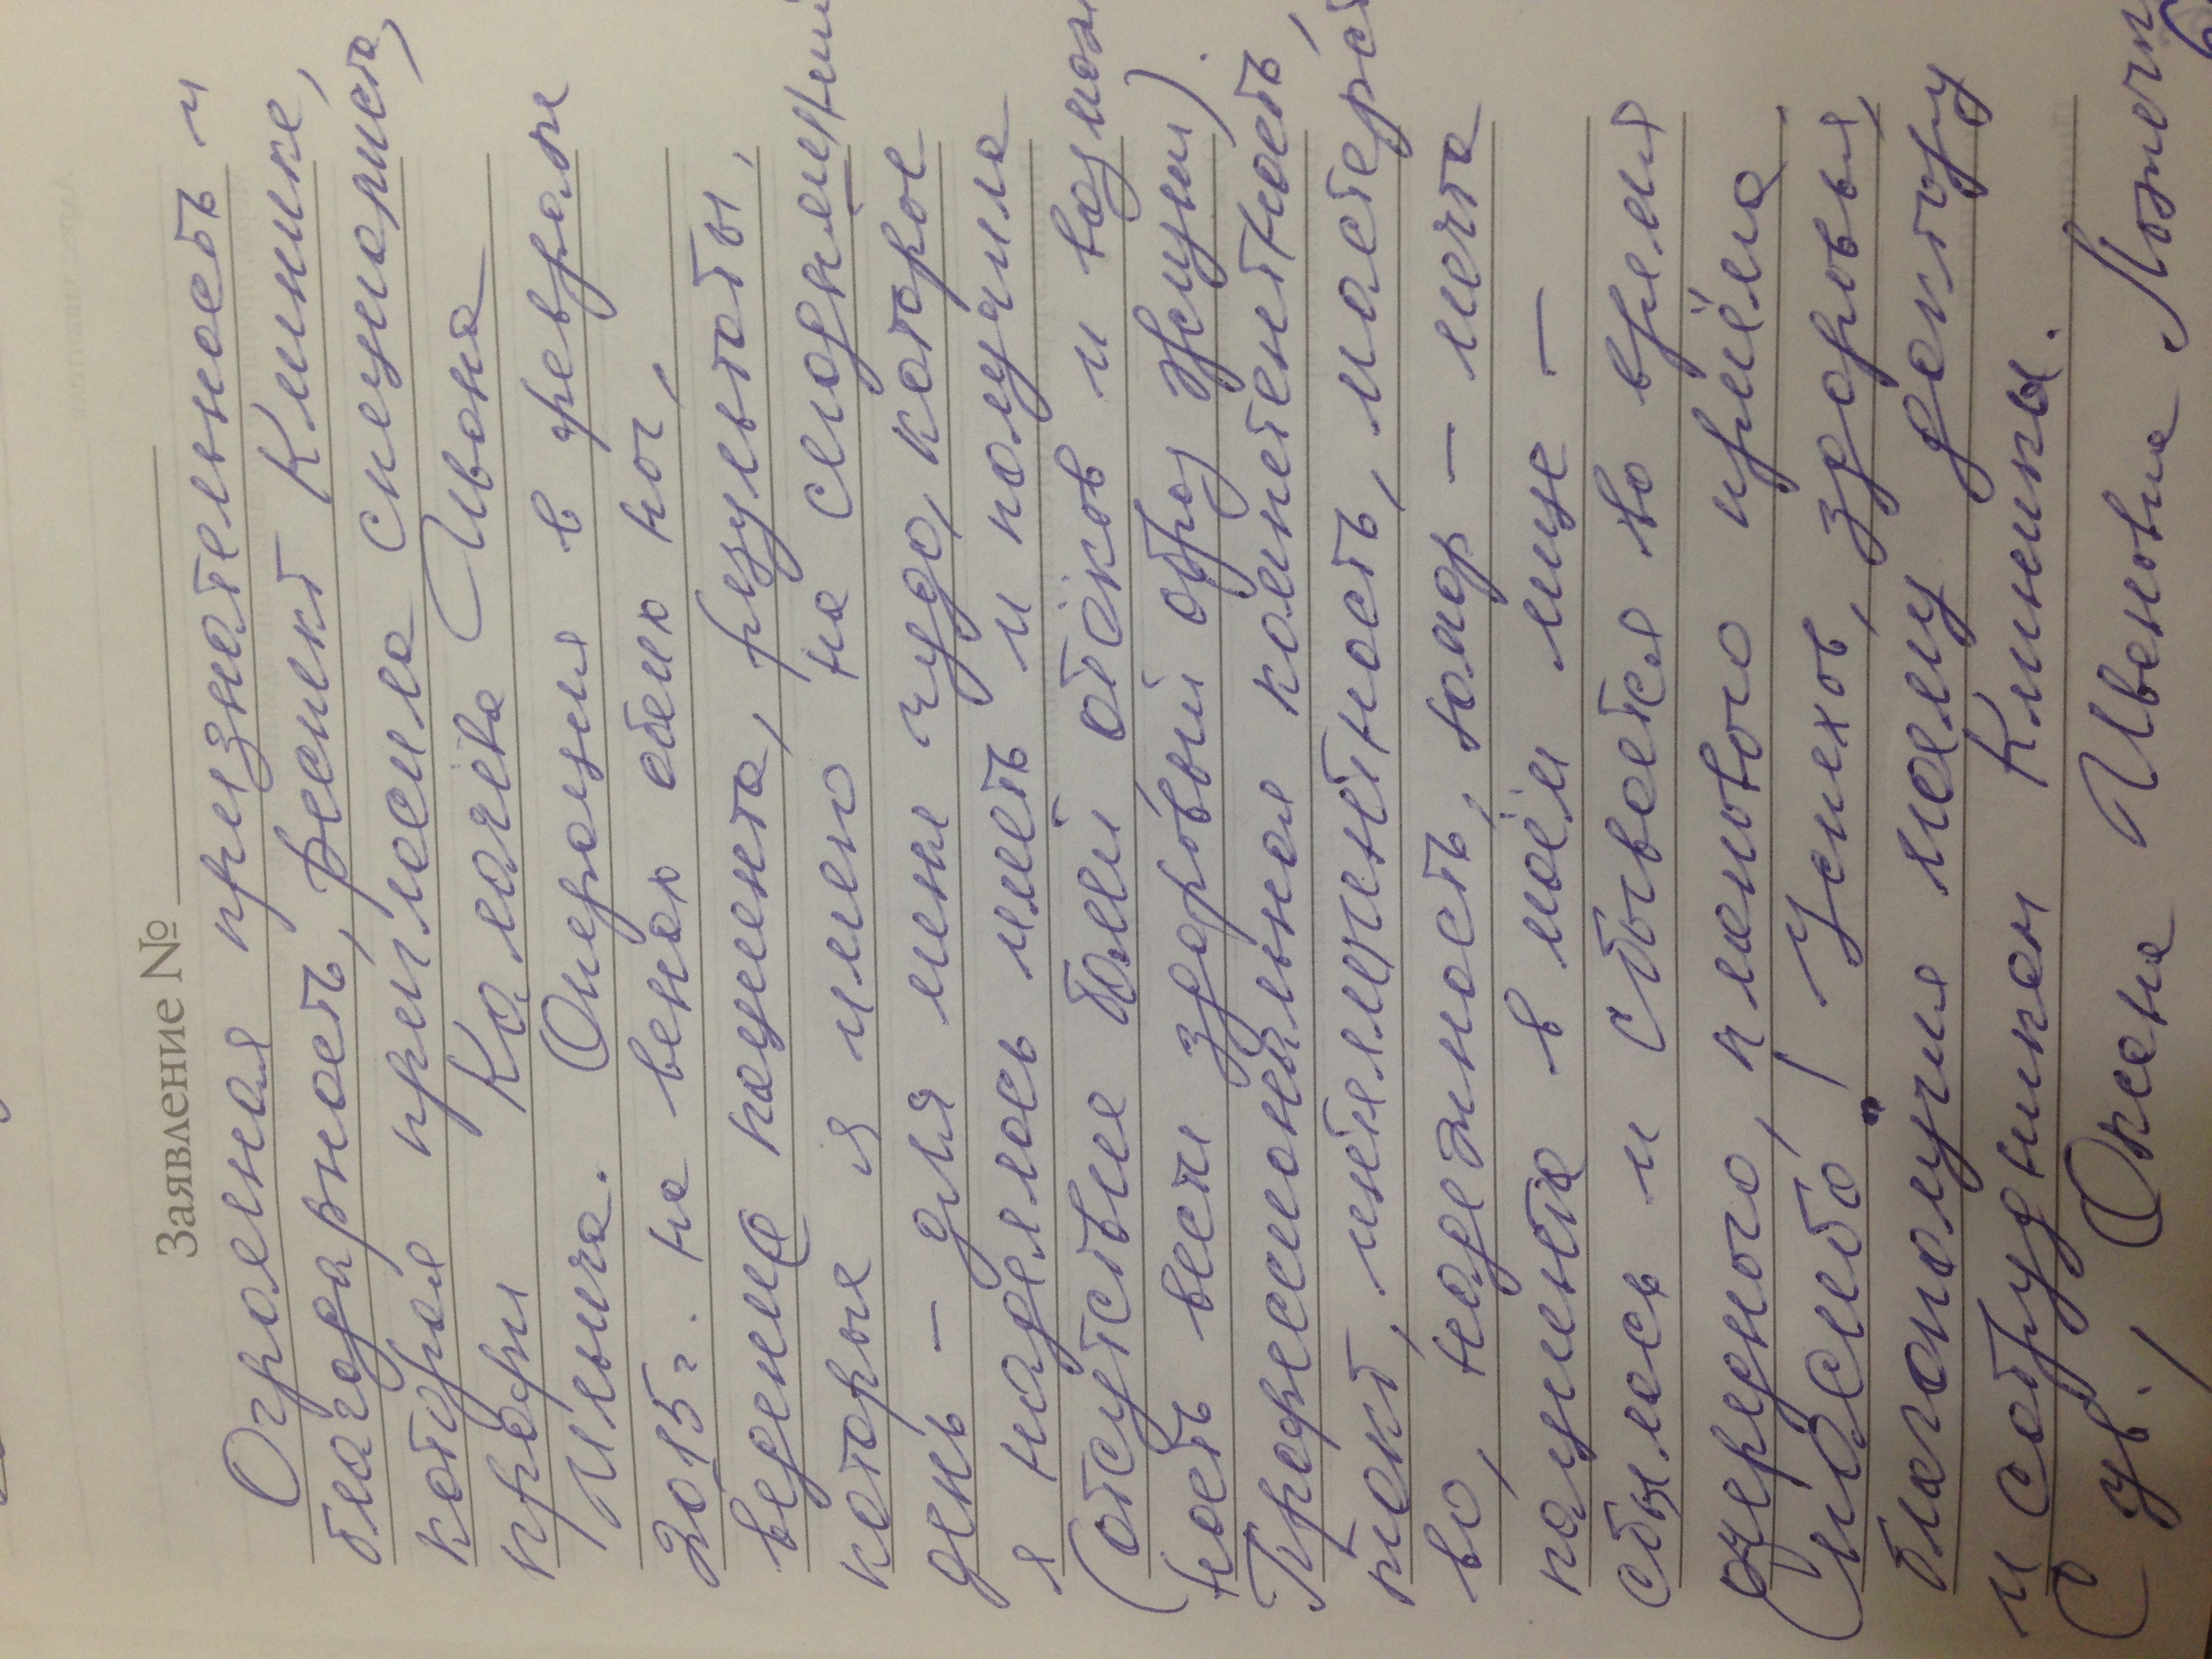 Заявление №
Огромная признательность и
благодарность, респект Клинике,
которая пригласила специалиста,
профи Калачёва Ивана
Ильича. Операция в феврале
2015г. на венах обеих ног,
ведение пациента, результаты,
которые я имею на сегодняшний
день – для меня чудо, которое
я надеялась иметь и получила
(отсутствие болей, отёков и возмож
ность вести здоровый образ жизни).
Профессиональная компетентность,
такт, интеллигентность, мастерст
во, надежность, юмор – мечта
пациента в моём лице –
сбылась и сбывается во время
очередного, планового приёма.
Спасибо! Успехов, здоровья,
благополучия моему доктору
и сотрудникам Клиники.
С ув., Оксана Ивановна